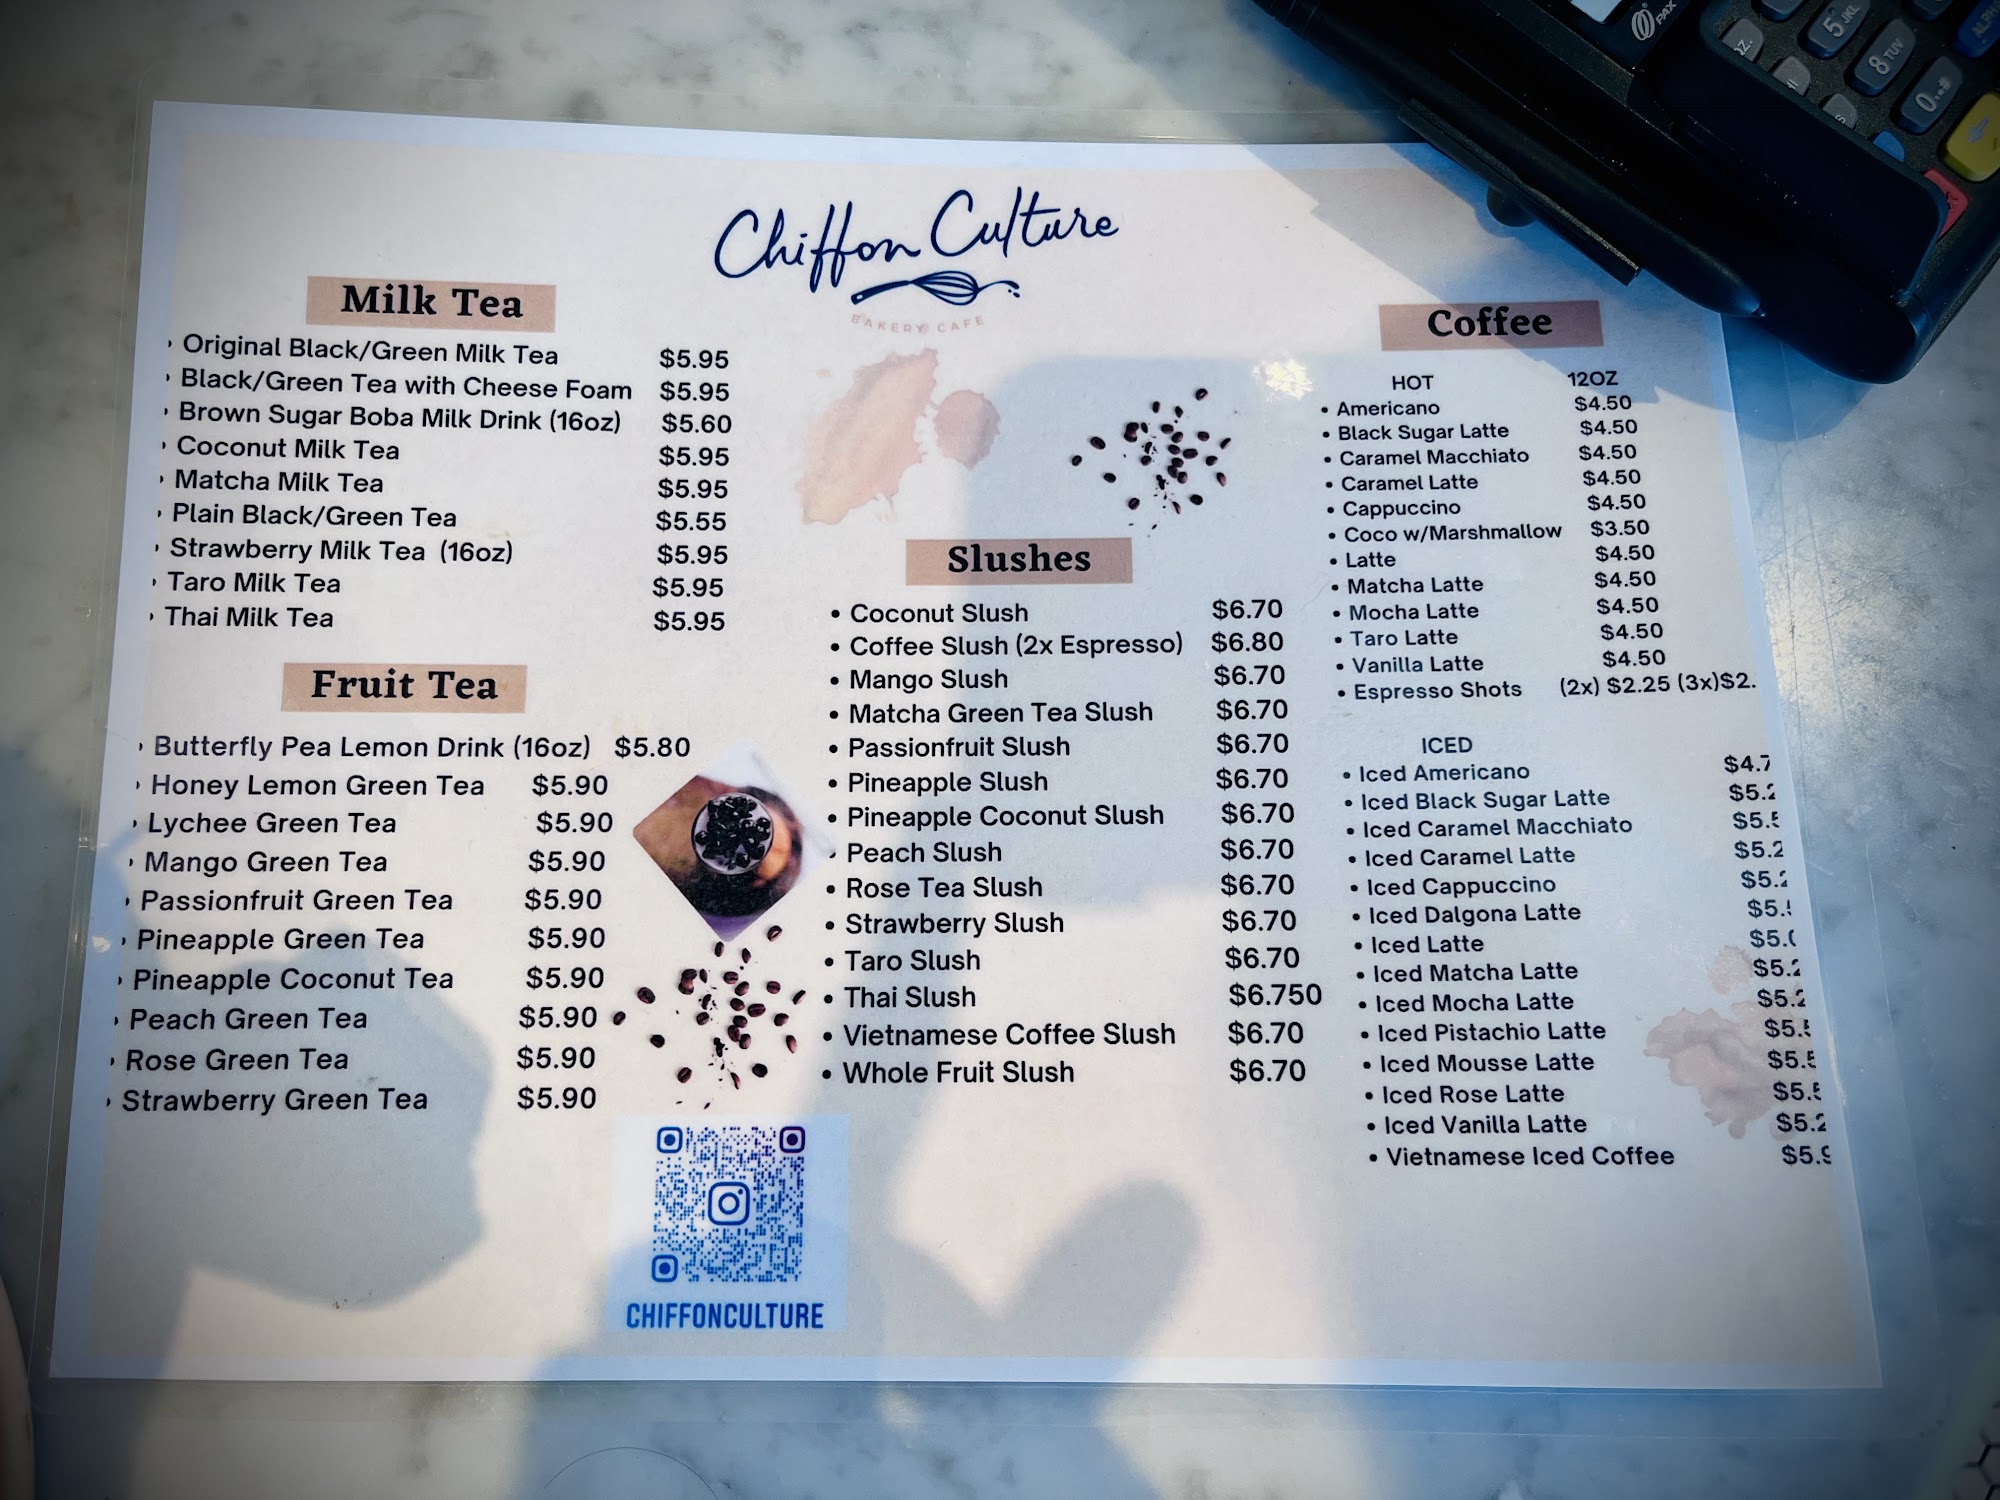 Chiffon Culture
BAKERY CAFE
Milk Tea
Original Black/Green Milk Tea $5.95
Black/Green Tea with Cheese Foam $5.95
Brown Sugar Boba Milk Drink (16oz) $5.60
Coconut Milk Tea $5.95
Matcha Milk Tea $5.95
Plain Black/Green Tea $5.55
Strawberry Milk Tea (16oz) $5.95
Taro Milk Tea $5.95
Thai Milk Tea $5.95
Fruit Tea
Butterfly Pea Lemon Drink (16oz) $5.80
Honey Lemon Green Tea $5.90
Lychee Green Tea $5.90
Mango Green Tea $5.90
Passionfruit Green Tea $5.90
Pineapple Green Tea $5.90
Pineapple Coconut Tea $5.90
Peach Green Tea $5.90
Rose Green Tea $5.90
Strawberry Green Tea $5.90
CHIFFONCULTURE
Slushes
Coconut Slush $6.70
Coffee Slush (2x Espresso) $6.80
Mango Slush $6.70
Matcha Green Tea Slush $6.70
Passionfruit Slush $6.70
Pineapple Slush $6.70
Pineapple Coconut Slush $6.70
Peach Slush $6.70
Rose Tea Slush $6.70
Strawberry Slush $6.70
Taro Slush $6.70
Thai Slush $6.750
Vietnamese Coffee Slush $6.70
Whole Fruit Slush $6.70
Coffee
HOT 12OZ
Americano $4.50
Black Sugar Latte $4.50
Caramel Macchiato $4.50
Caramel Latte $4.50
Cappuccino $4.50
Coco w/Marshmallow $3.50
Latte $4.50
Matcha Latte $4.50
Mocha Latte $4.50
Taro Latte $4.50
Vanilla Latte $4.50
Espresso Shots (2x) $2.25 (3x)$2.
ICED
Iced Americano $4.7
Iced Black Sugar Latte $5.
Iced Caramel Macchiato $5.
Iced Caramel Latte $5.2
Iced Cappuccino $5.
Iced Dalgona Latte $5.
Iced Latte $5.
Iced Matcha Latte $5.2
Iced Mocha Latte $5.2
Iced Pistachio Latte $5.
Iced Mousse Latte $5.5
Iced Rose Latte $5.
Iced Vanilla Latte $5.2
Vietnamese Iced Coffee $5.9
PAX
5 JKL
8 TUV
0